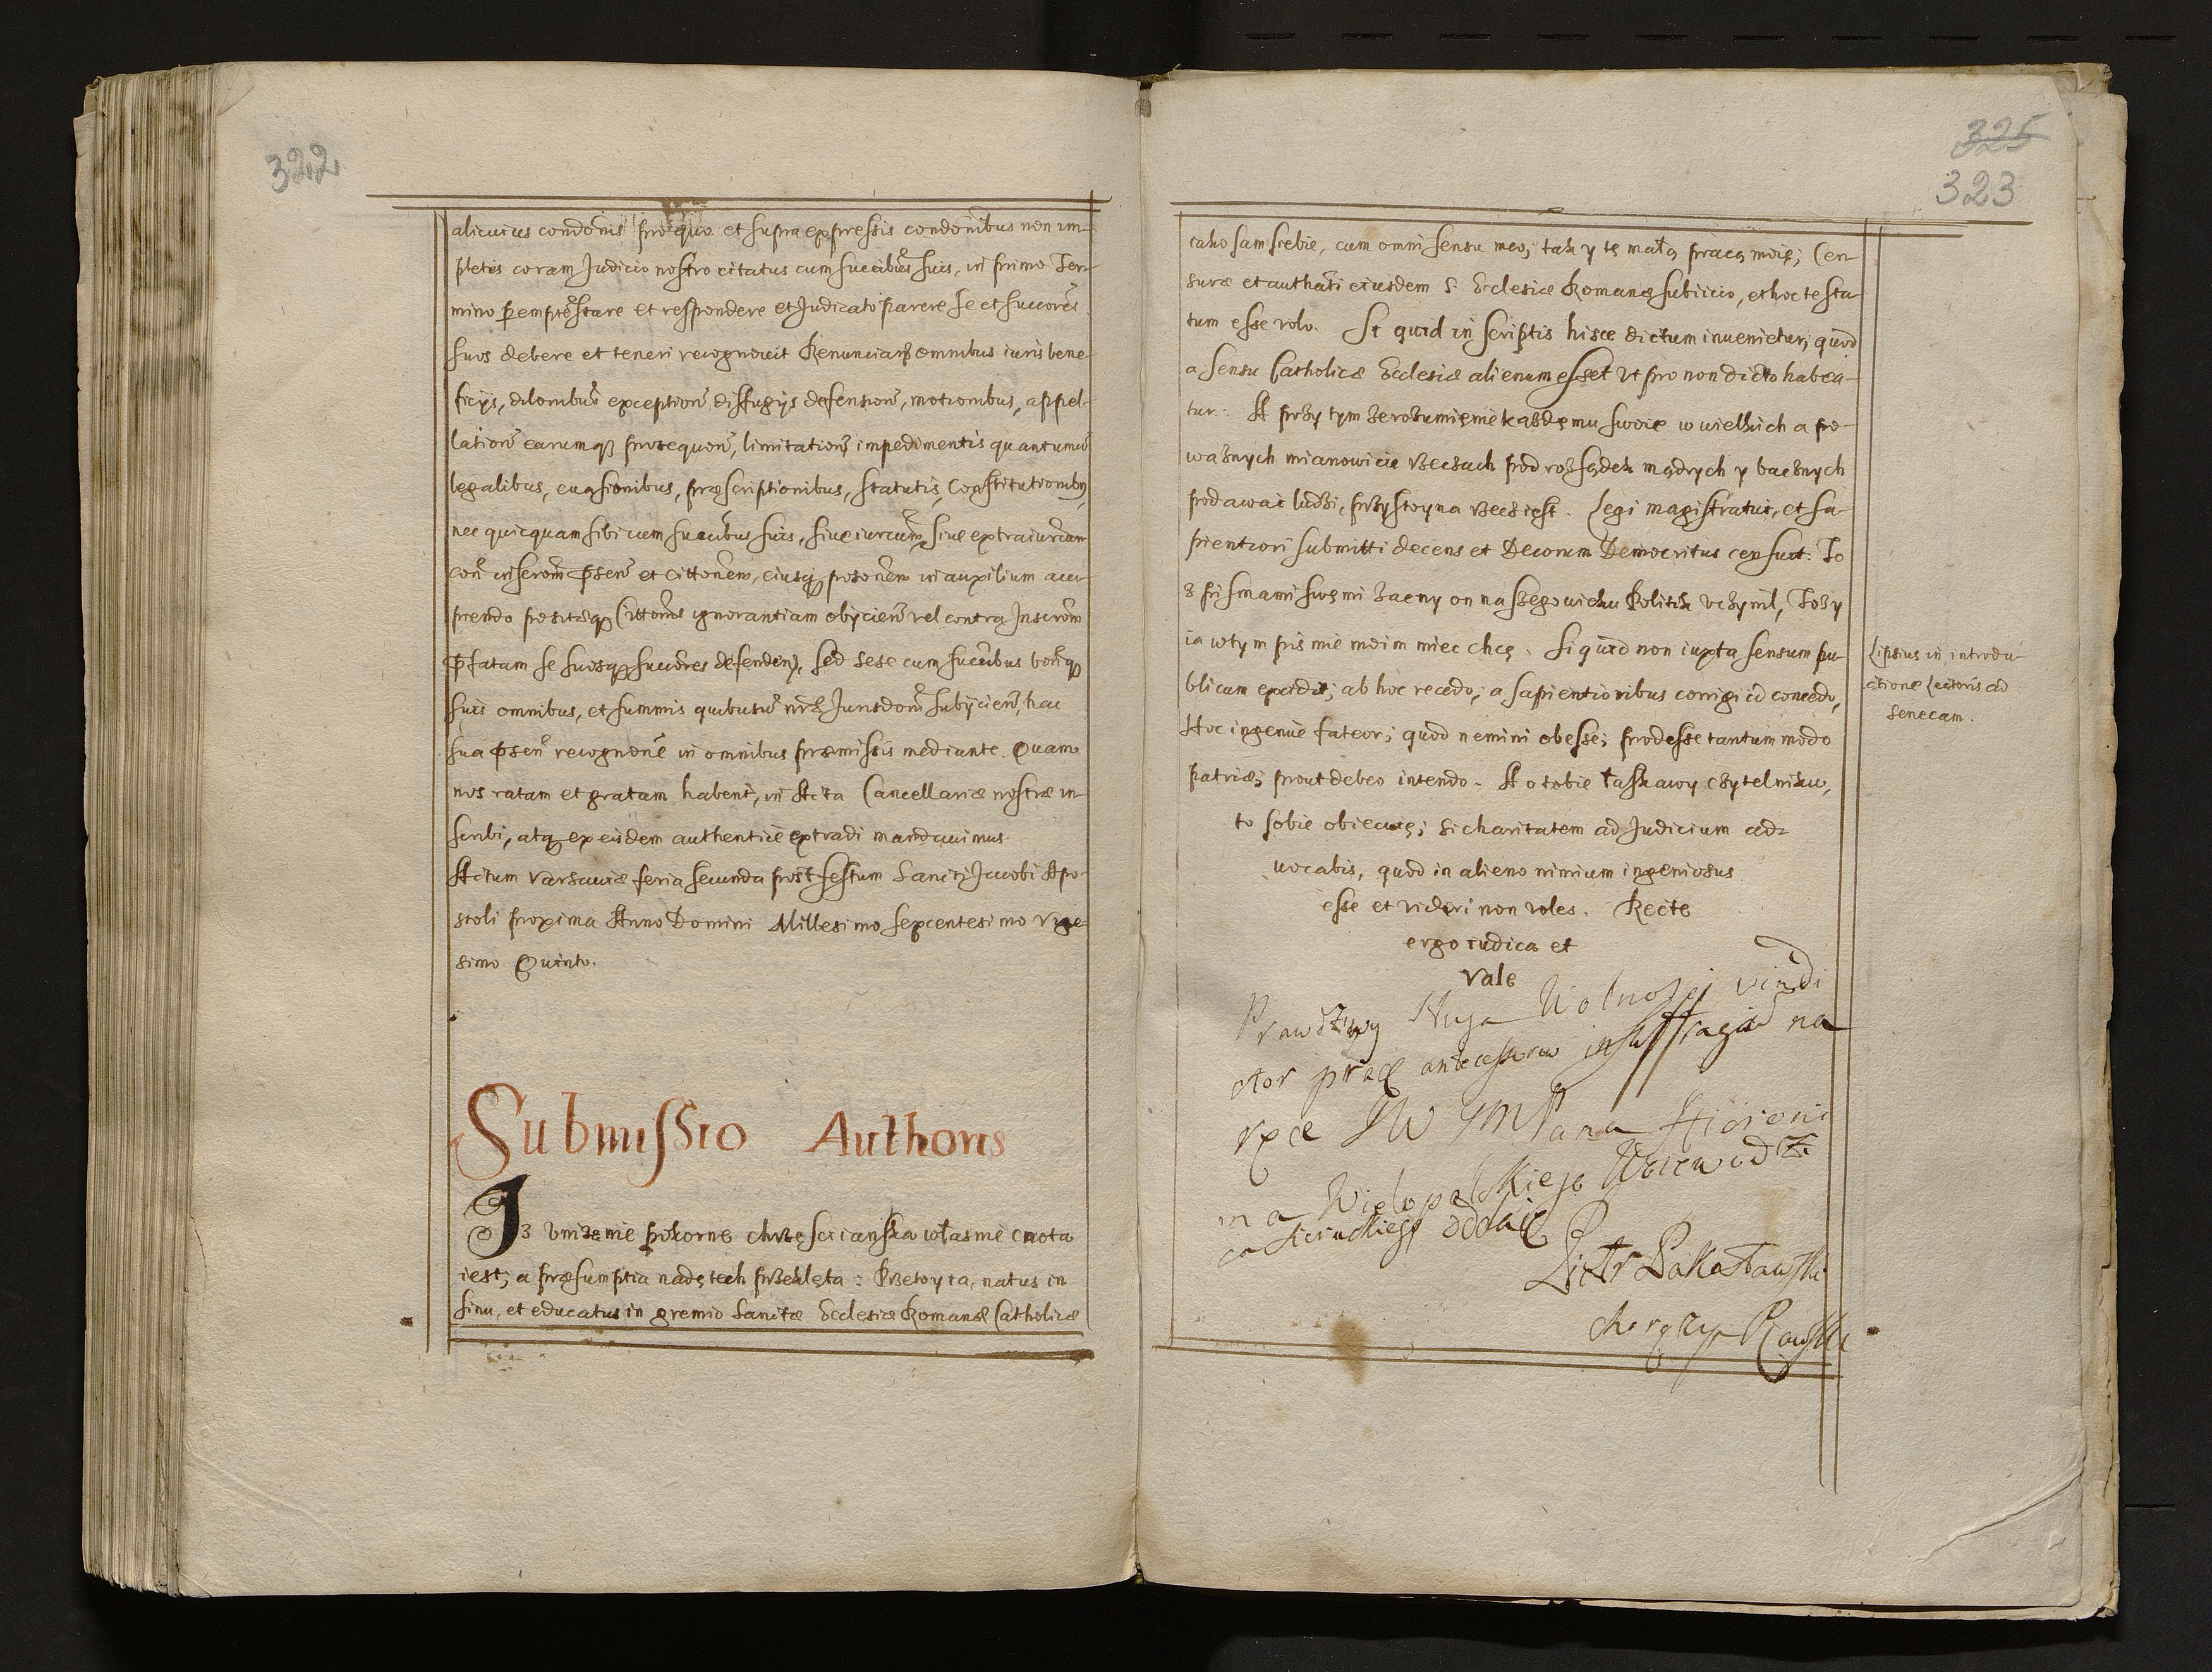 322
alicuius condōnis pro quo et supra expressis condōnibus non im-
pletis coram Judicio nostro citatus cum succibus suis, in primo Ter-
mino stare et respondere et Judicato parere se et succores
suos debere et teneri recognovit Renuncians omnibus iuris bene-
ficijs, dilonibus exception diffugijs defension, motionibus, appel-
lation earumq prosequon, limitation impedimentis quantumvis
legalibus, euasionibus, præscriptionibus, statutis, Constitutionibus,
nec quicquam sibi cum succibus suis, siue siue
et cittonem, eiusq in auxilium acci-
piendo ignorantiam obijcien vel contra
se suosq succores defenden, sed sese cum succibus bonisq
suis omnibus, et summis quibusuis subijcien, hac
sua recognone in omnibus præmissis mediante. Quam
nos ratam et gratam habent, in Acta Cancellariæ nostræ in-
scribi, atq ex eisdem authentice extradi mandauimus.
Actum Varsauiæ feria secunda post festum Sancti Jacobi Apo-
stoli proxima Anno Domini Millesimo sexcentesimo Vige-
simo Quinto.
Submissio Authoris
Iż vniżenie pokorne chrześcianska własnie cnota
iest, a præsumptia nadętech przeklęta: Przetoy ia, natus in
sinu, et educatus in gremio Sanctæ Ecclesiæ Romanæ Catholicæ
325
323
iako sam siebie, cum omni sensu meo, tak y tę małą pracę moię; Cen-
suræ et authāti eiusdem S. Ecclesiæ Romanæ subiicio, et hoc testa-
tum esse volo. Si quid in scriptis hisce dictum inuenietur, quod
a sensu Catholicæ Ecclesiæ alienum esset vt pro non dicto habea-
tur. A przy tym że rozumięnie każdęmu swoie w wielkich a po-
ważnych mianowicie rzeczach pod rozsądek mądrych y bacznych
podawać ludzi, przystoyna rzecz iest. Legi magistratui, et sa-
pientiori submitti decens et Decorum Democritus censuit. To
z pismami swęmi zacny on naszego wieku Politik vczynil, Toż y
ia w tym pismie moim mieć chcę. Si quid non iuxta sensum pu-
blicum excidit; ab hoc recedo, a sapientioribus corrigi id concedo,
Hoc ingenuè fateor; quod nemini obesse; prodesse tantummodo
patriæ; prout debeo intendo. A o tobie łaskawy czytelniku,
to sobie obiecuię; si charitatem ad Judicium ad-
uocabis, quod in alieno nimium ingeniosus
esse et videri non voles. Recte
ergo iudica et
Vale
Lipsius in introdu-
ctione Lectoris ad
Senecam.
Prawdziwy Sługa Wolnosci vindi
ctor præ antecessorow in suffragia na
ręce JW JM Pana Hieroni
ma Wielopolskiego Woiewodz
ca oddaię
Piotr
Chorąży Rawski